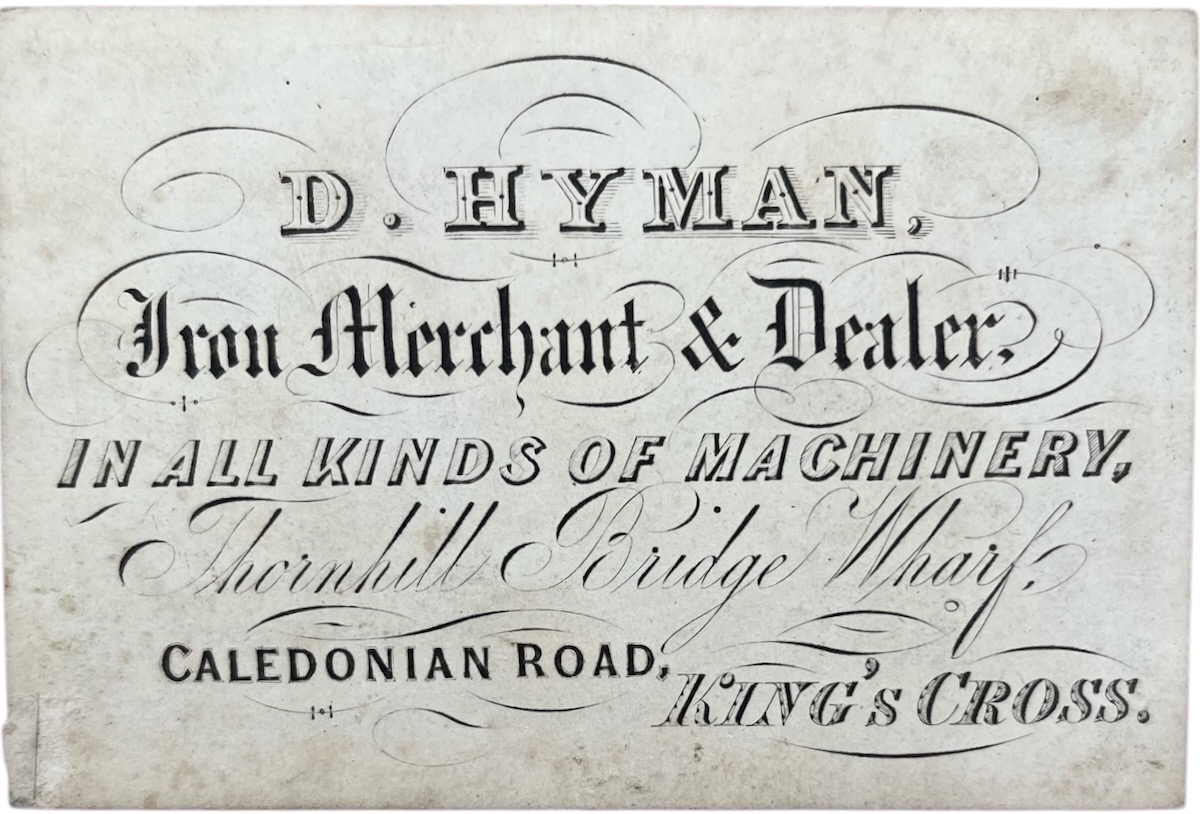 D. HYMAN,
Iron Merchant & Dealer.
IN ALL KINDS OF MACHINERY,
Thornhill Bridge Wharf,
CALEDONIAN ROAD,
KING's CROSS.